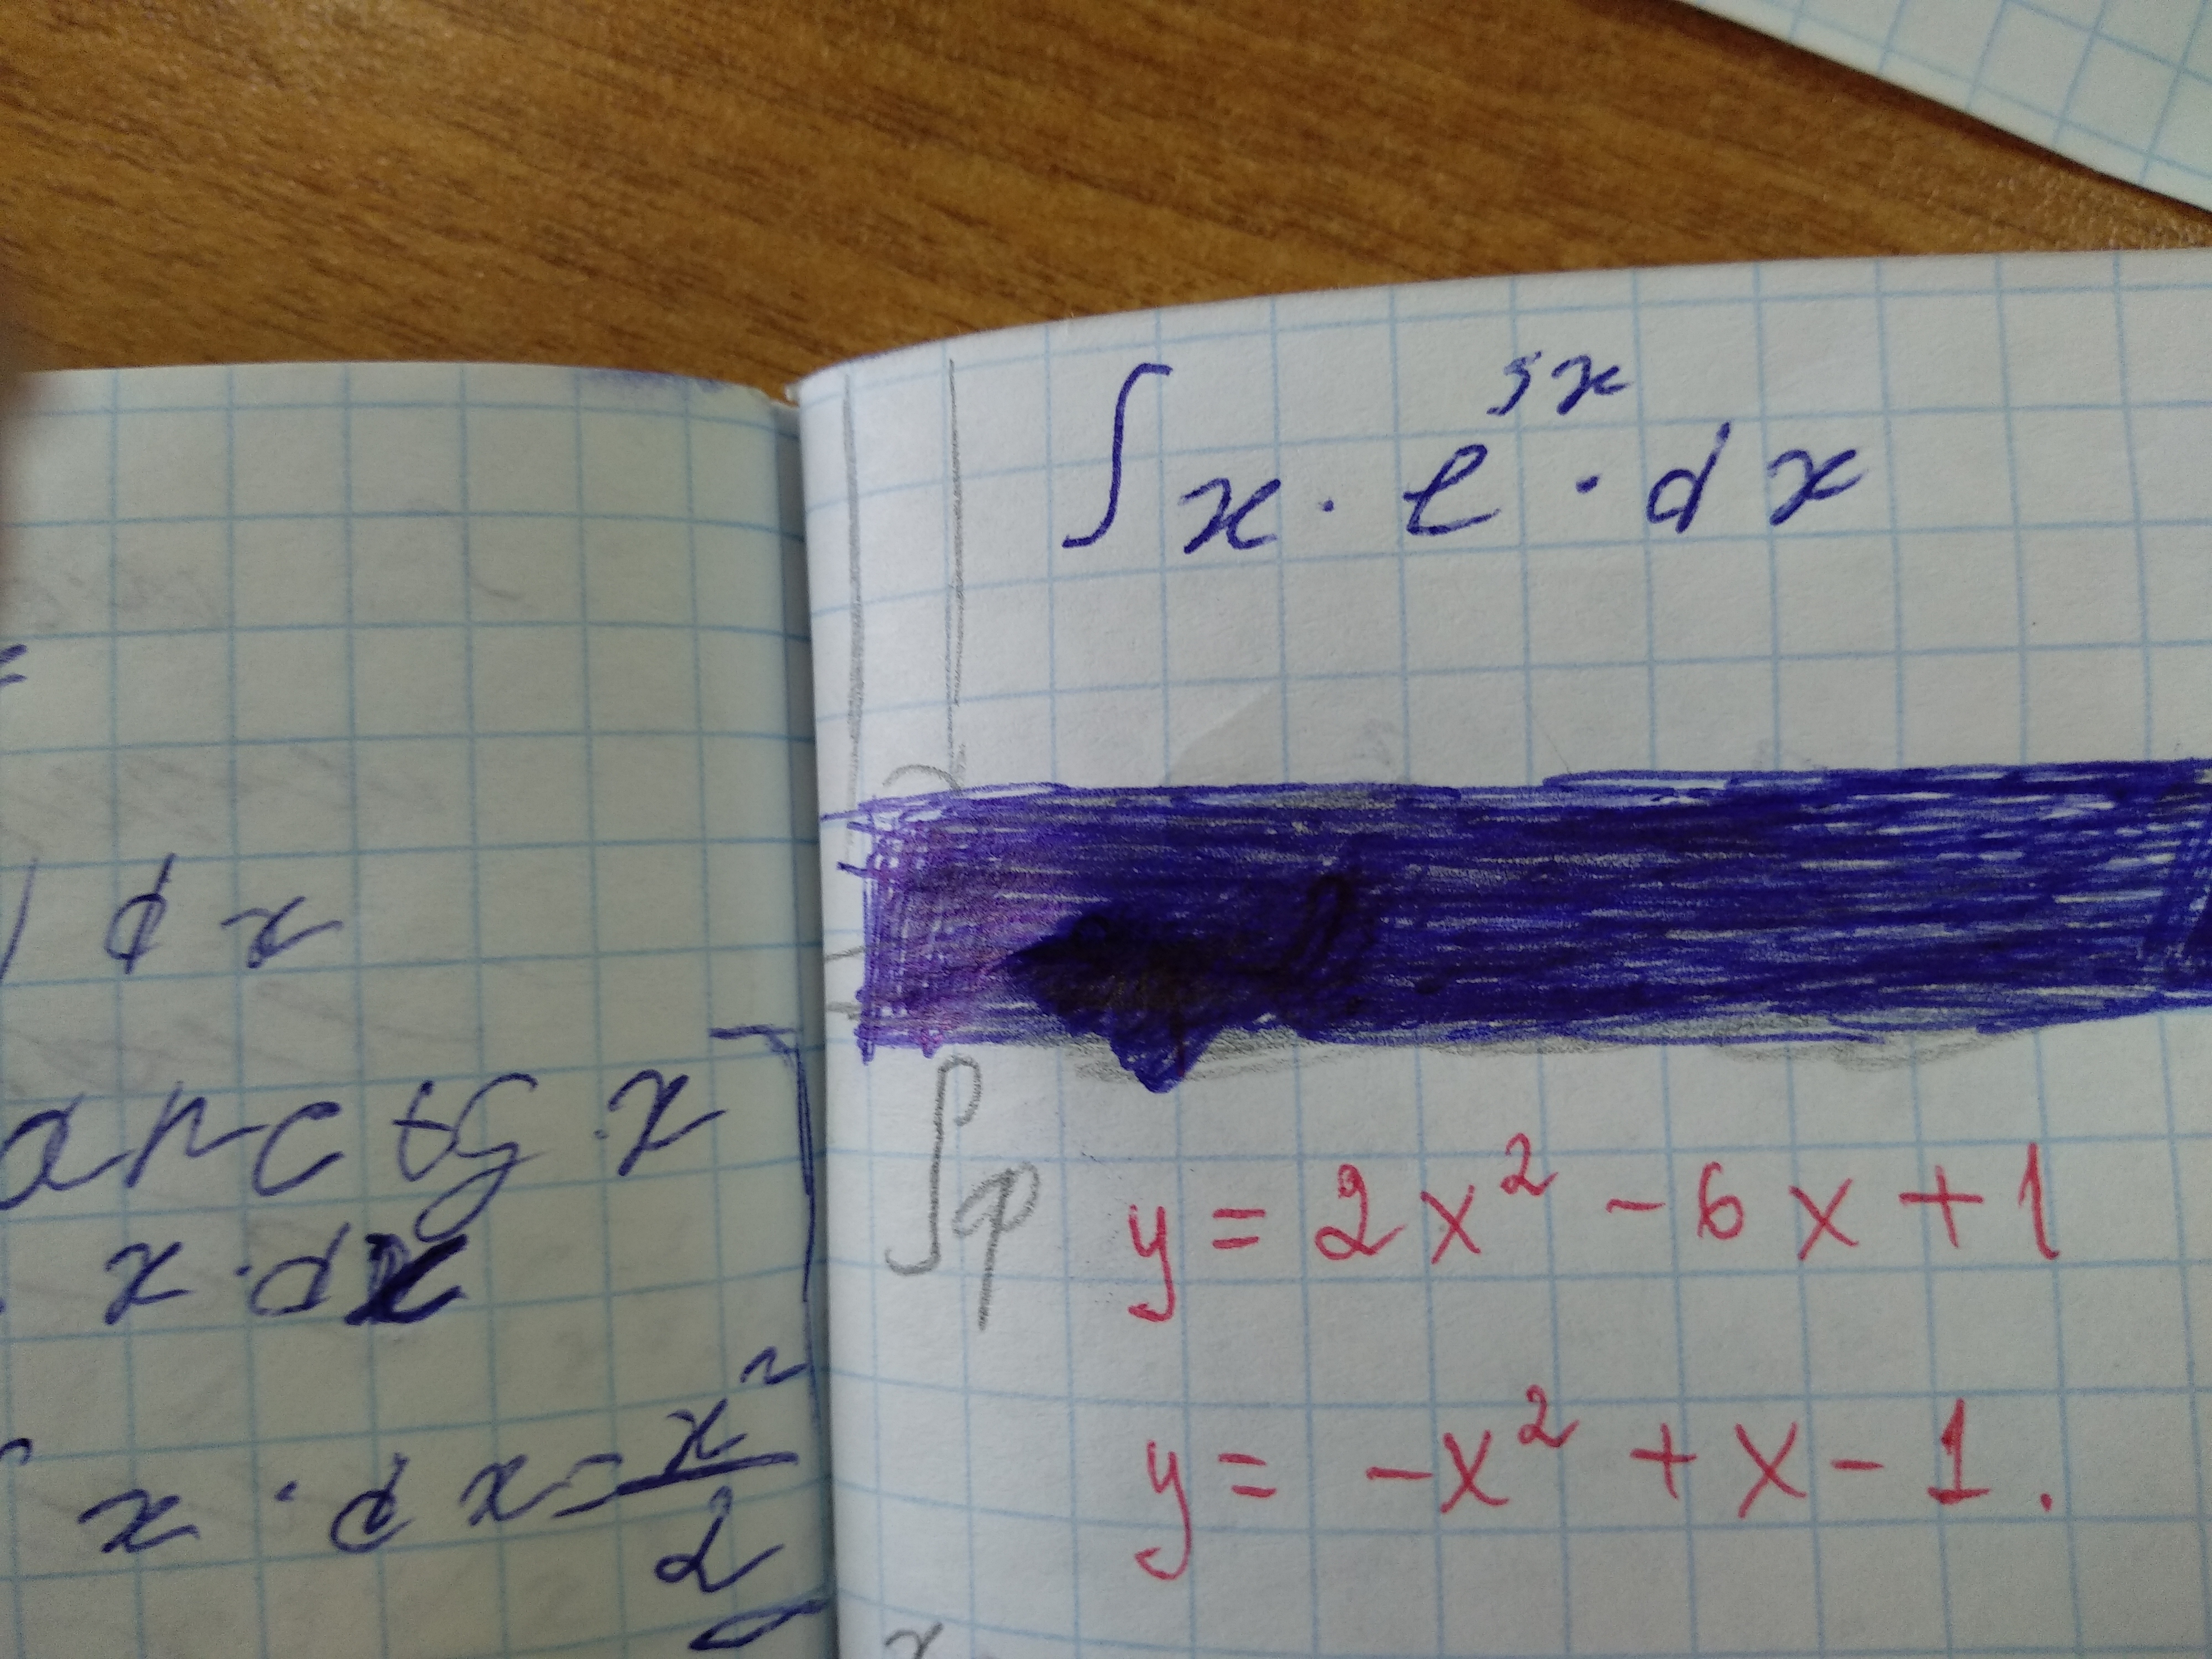 =
) dx
arctg x
x · dx
x · dx = x²/2
∫ x · e⁵ˣ · dx
∫φ
y = 2x² - 6x + 1
y = -x² + x - 1.
x